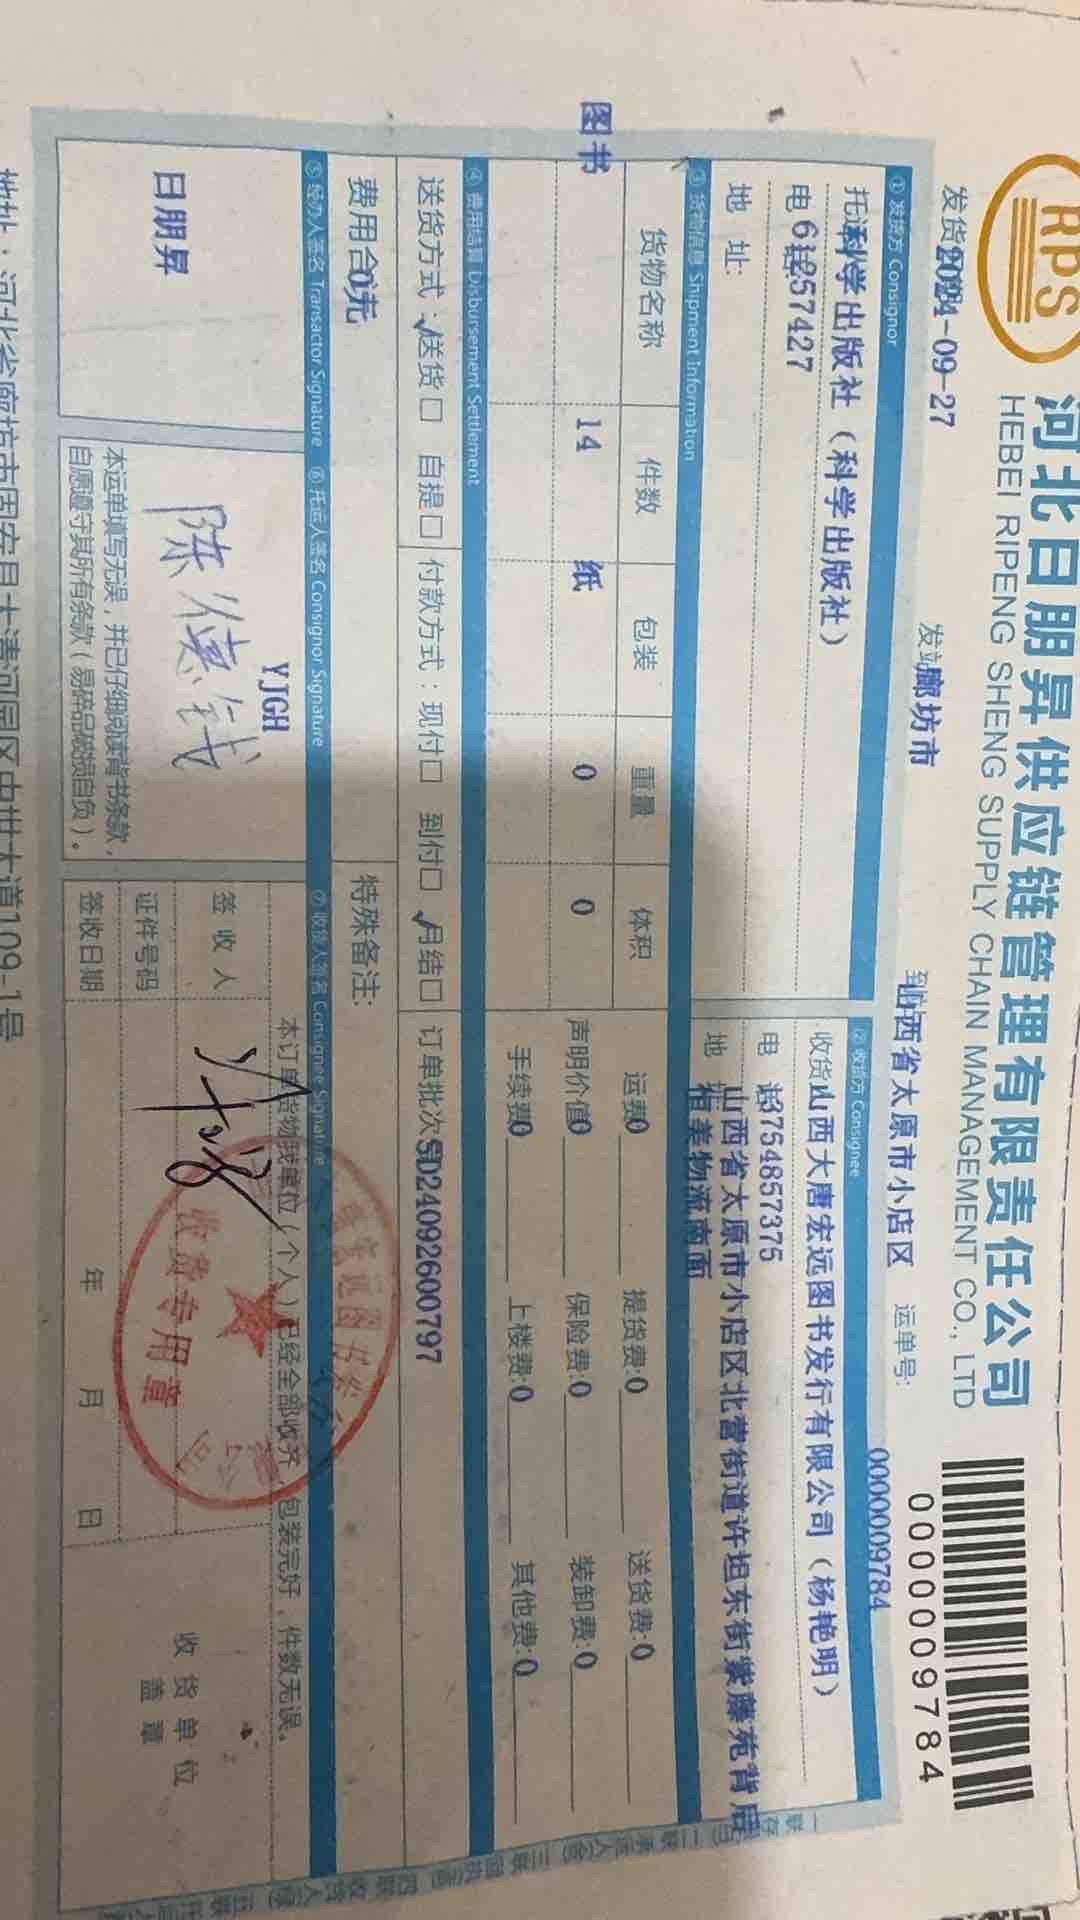 RPS
河北日朋昇供应链管理有限责任公司
HEBEI RIPENG SHENG SUPPLY CHAIN MANAGEMENT CO., LTD
0000009784
发货 2024-09-27
发站 廊坊市
到 山西省太原市小店区
运单号:
0000009784
① 发货方 Consignor
托运 科学出版社（科学出版社）
电 61257427
地 址:
② 收货方 Consignee
收货 山西大唐宏远图书发行有限公司（杨艳明）
电 话 13754857375
地 山西省太原市小店区北营街道许坦东街紫藤苑背后
恒美物流南面
③ 货物信息 Shipment Information
货物名称 件数 包装 重量 体积
图书 14 纸 0 0
运费 0 提货费:0 送货费:0
声明价值 0 保险费:0 装卸费:0
手续费 0 上楼费:0 其他费:0
④ 费用结算 Disbursement Settlement
送货方式:✓送货□ 自提□ 付款方式:现付□ 到付□ ✓月结□ 订单批次 SD24092600797
费用合 0元
特殊备注:
⑤ 经办人签名 Transactor Signature ⑥ 托运人签名 Consignor Signature ⑦ 收货人签名 Consignee Signature
日朋昇
YJGH
本运单填写无误，并已仔细阅读背书条款，
自愿遵守其所有条款（易碎品破损自负）。
本订单货物我单位(个人)已经全部收齐，包装完好，件数无误。
签 收 人
证件号码
签收日期 年 月 日
收货专用章
收 货 单 位
盖 章
地址：河北省廊坊市固安县大清河园区中世大道109-1号